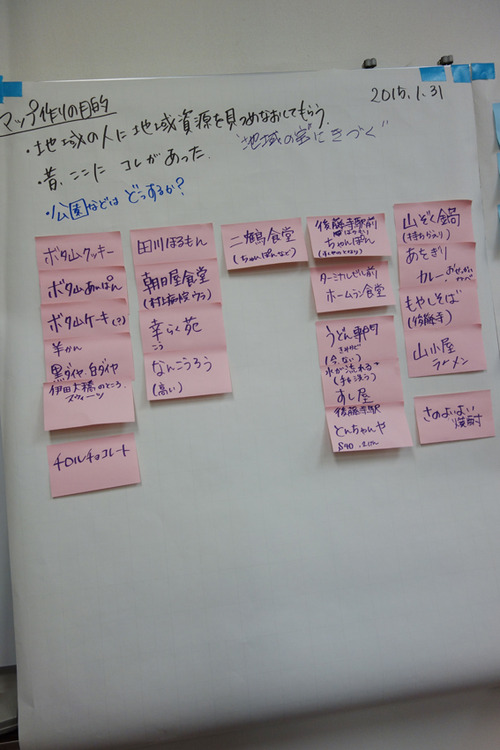 マップ作りの目的
2015.1.31
・地域の人に地域資源を見つめなおしてもらう.
"地域の宝にきづく"
・昔、ここに コレがあった.
・公園などは どうするか?
ボタ山クッキー
ボタ山あんぱん
ボタ山ケーキ(?)
羊かん
黒ダイヤ 白ダイヤ
伊田大橋のところ
スウィーツ
チロルチョコレート
田川ほるもん
朝日屋食堂
幸らく苑
こう
なんこうろう
(高い)
二鶴食堂
(ちゃんぽんなど)
後藤寺駅前
ちゃんぽん
ターミナルビル前
ホームラン食堂
うどん専門
(今ない)
水が流れるで
(手を洗う)
すし屋
後藤寺駅
とんちゃんや
山ぞく鍋
(持ち帰り)
カレー
もやしそば
(後藤寺)
山小屋
ラーメン
さのよいよい
焼酎